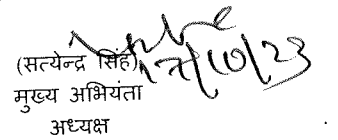 (सत्येन्द्र सिंह)
मुख्य अभियंता
अध्यक्ष